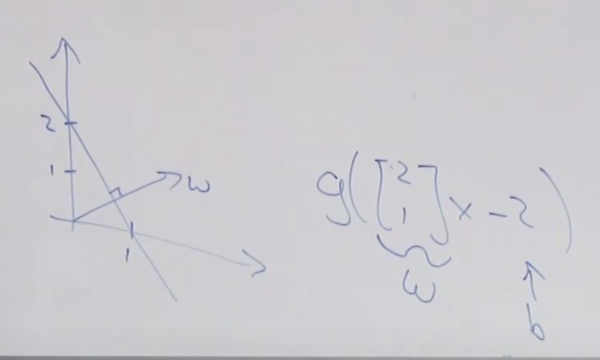 2
1
w
1
g([2 1] x - 2)
w
b